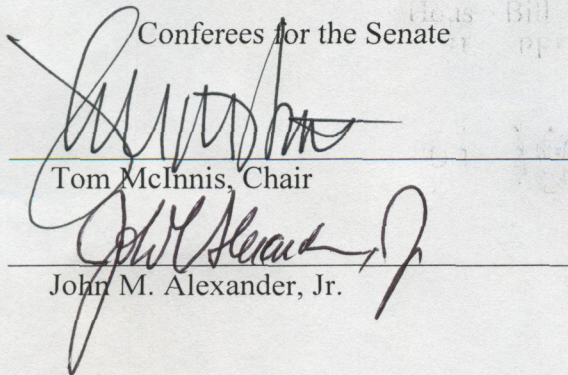 Conferees for the Senate
Tom McInnis, Chair
John M. Alexander, Jr.
John M Alexander, Jr.